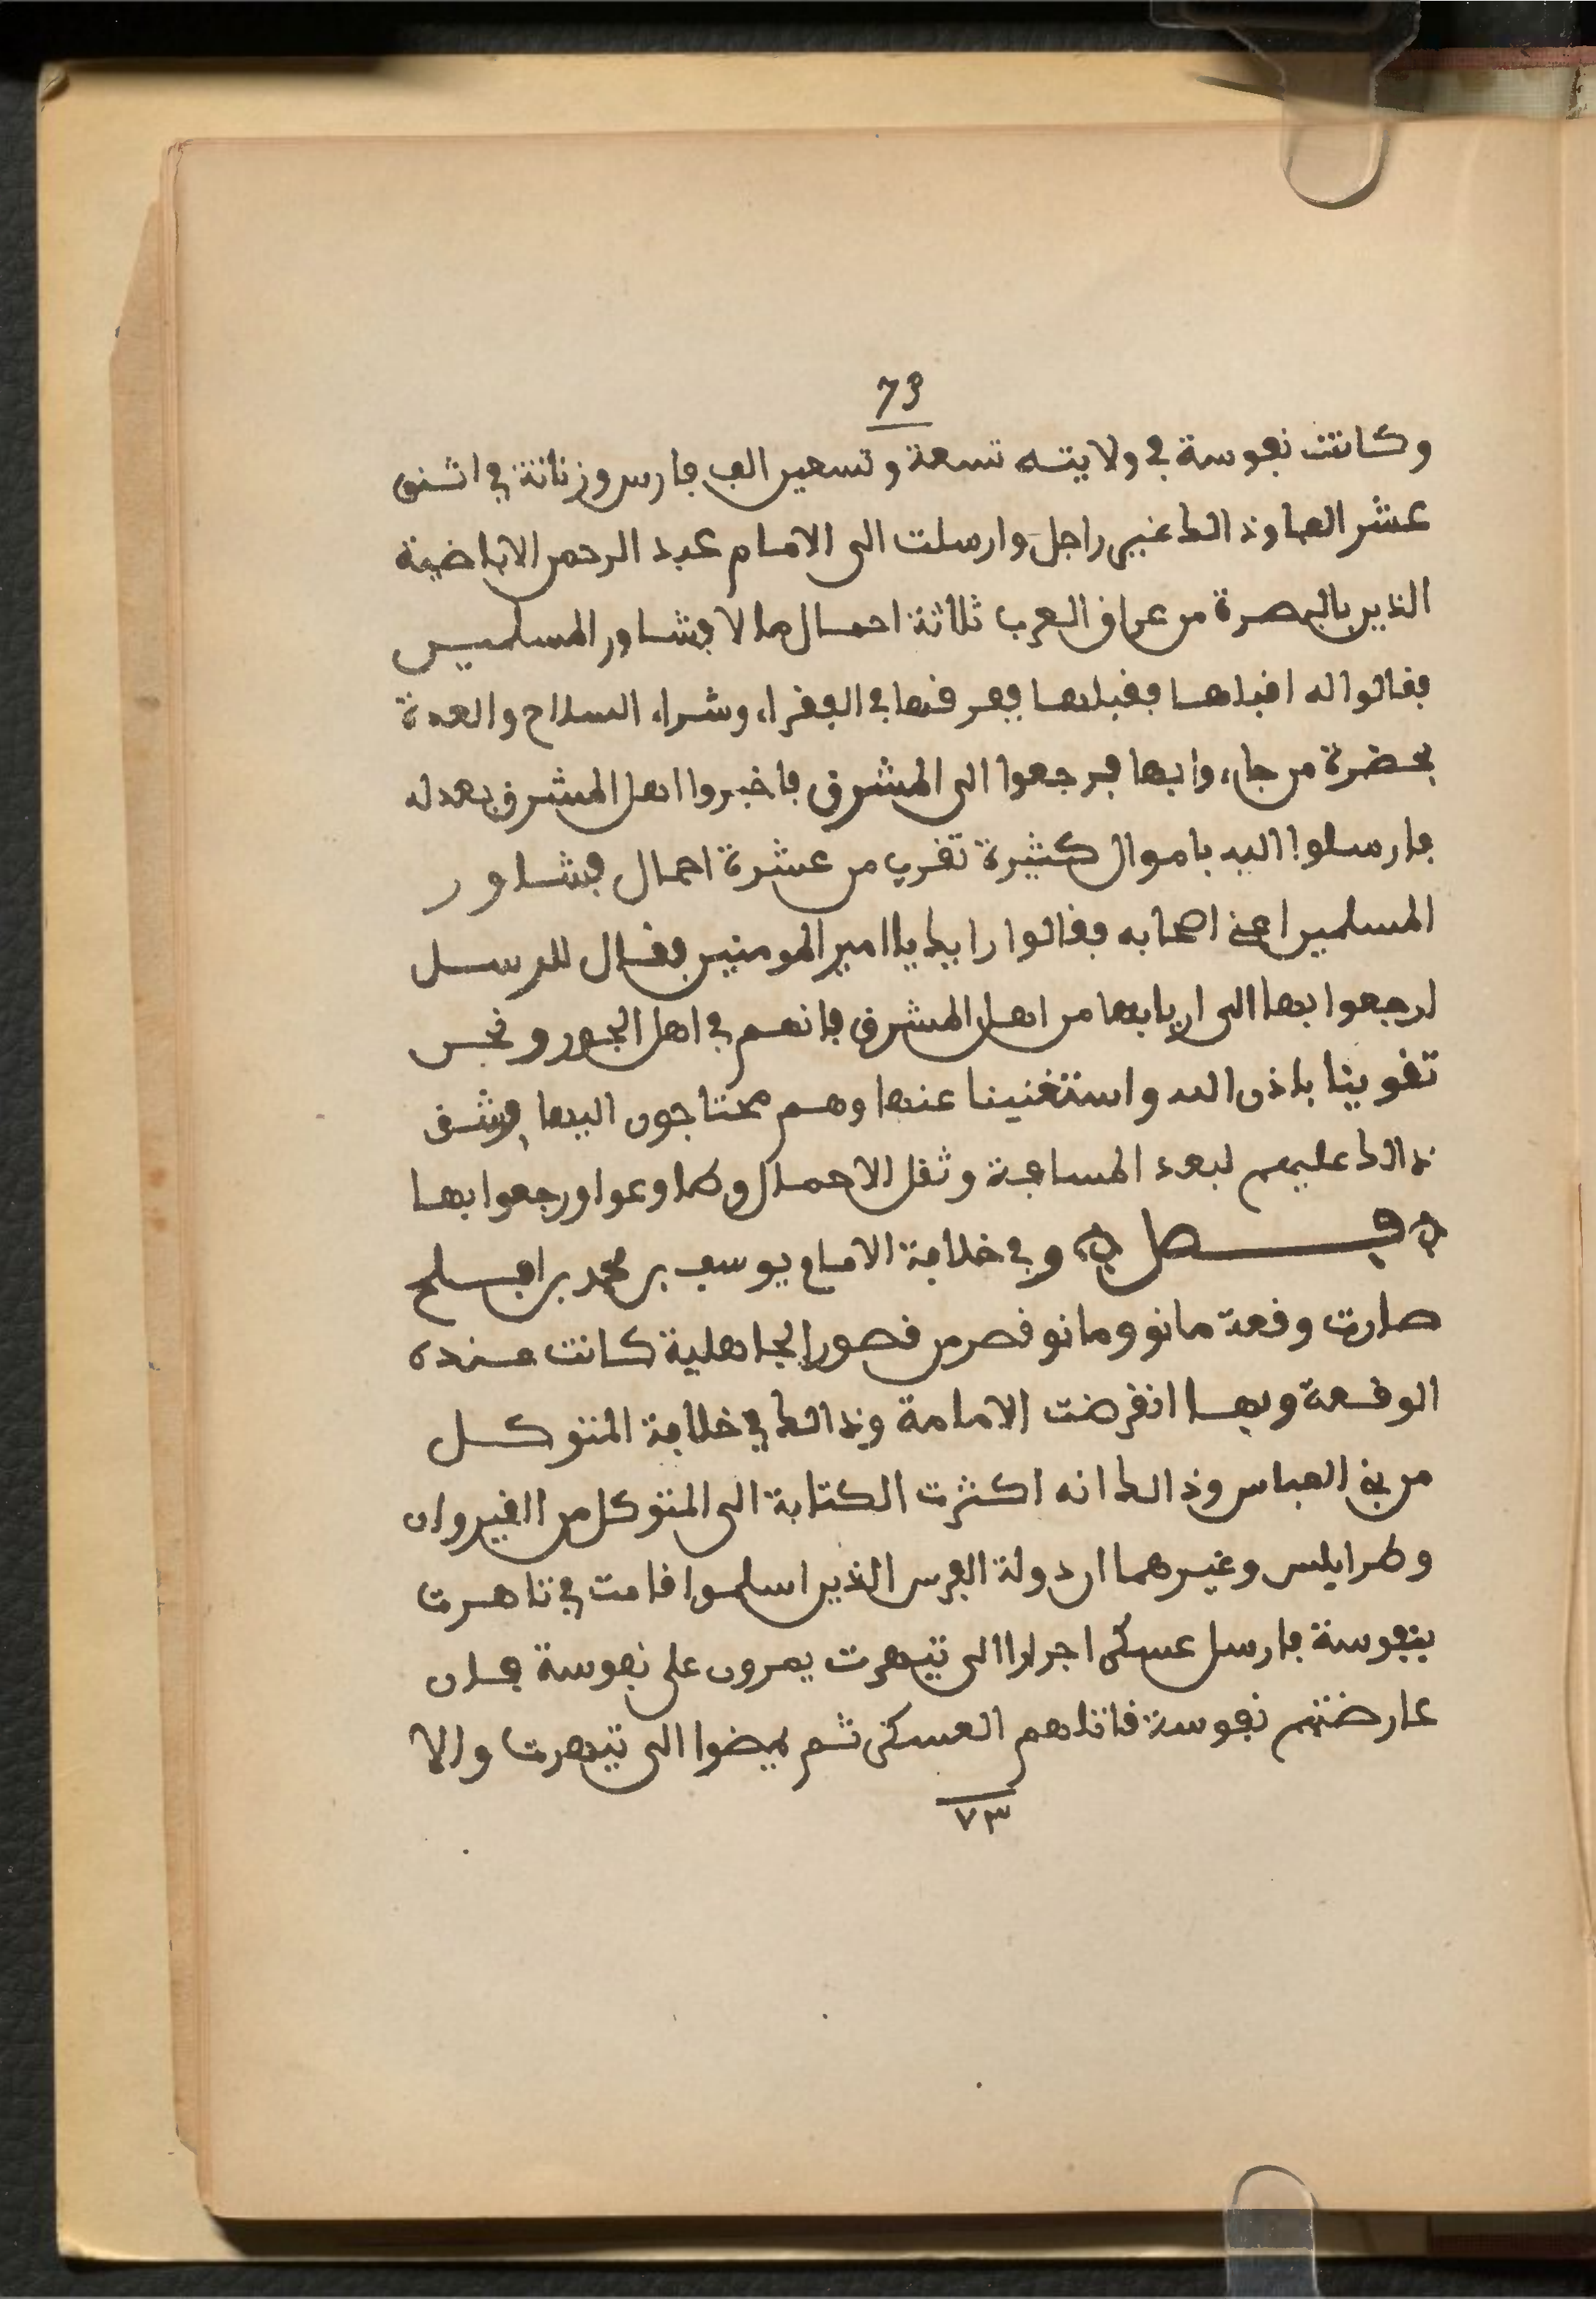 73
وكانت نفوسة في ولايته تسعة وتسعين الف فارس وزناتة في اثنى
عشر الفا وذالك غير راجل وارسلت الى الامام عبد الرحمن الاباضية
الذين بالبصرة من عراق العرب ثلاثة احمال مالا فشاور المسلمين
فقالوا له اقبلها فقبلها ففرقها في الفقراء وشراء السلاح والعدة
بحضرة من جاءوا بها فرجعوا الى المشرق فاخبروا اهل المشرق بعدله
فارسلوا اليه باموال كثيرة تقرب من عشرة احمال فشاور
المسلمين اعني اصحابه فقالوا رايك يا امير المومنين فقال للرسل
ارجعوا بها الى اربابها من اهل المشرق فانهم في اهل الجور ونحن
تقوينا باذن الله واستغنينا عنها وهم محتاجون اليها فشق
ذالك عليهم لبعد المسافة وثقل الاحمال وطاوعوا ورجعوا بها
فصل وفي خلافة الامام يوسف بن محمد بن افلح
صارت وقعة مانو ومانو قصر من قصور الجاهلية كانت عنده
الوقعة وبها انقرضت الامامة وذالك في خلافة المتوكل
من بني العباس وذالك انه اكثرت الكتابة الى المتوكل من القيروان
وطرابلس وغيرهما ان دولة الفرس الذين اسلموا قامت في تاهرت
بنفوسة فارسل عسكرا جرارا الى تيهرت يمرون على نفوسة فان
عارضتهم نفوسة قاتلهم العسكر ثم يمضوا الى تيهرت والا
٧٣